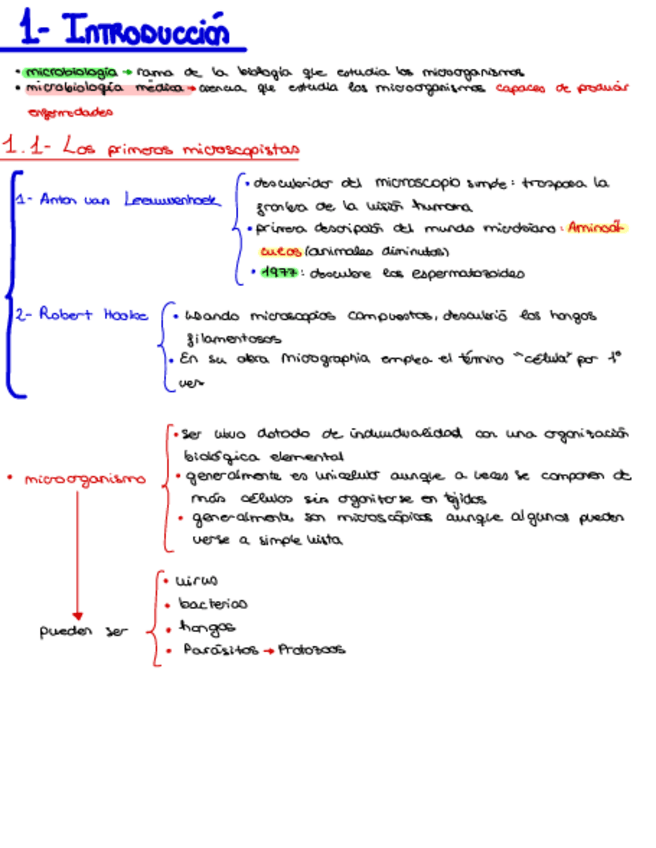 1- INTRODUCCIÓN
• microbiología → rama de la biología que estudia los microorganismos
• microbiología médica → ciencia que estudia los microorganismos capaces de producir
enfermedades
1.1- Los primeros microscopistas
1- Anton van Leeuwenhoek
• descubridor del microscopio simple: traspasa la
frontera de la visión humana
• primera descripción del mundo microbiano: Aminoál
culos (animales diminutos)
• 1977: descubre los espermatozoides
2- Robert Hooke
• usando microscopios compuestos, descubrió los hongos
filamentosos
• En su obra Micrographia emplea el término "célula" por 1°
vez
• microorganismo
• ser vivo dotado de individualidad con una organización
biológica elemental
• generalmente es unicelular aunque a veces se componen de
más células sin organizarse en tejidos
• generalmente son microscópicos aunque algunos pueden
verse a simple vista
pueden ser
• virus
• bacterias
• hongos
• Parásitos → Protozoos